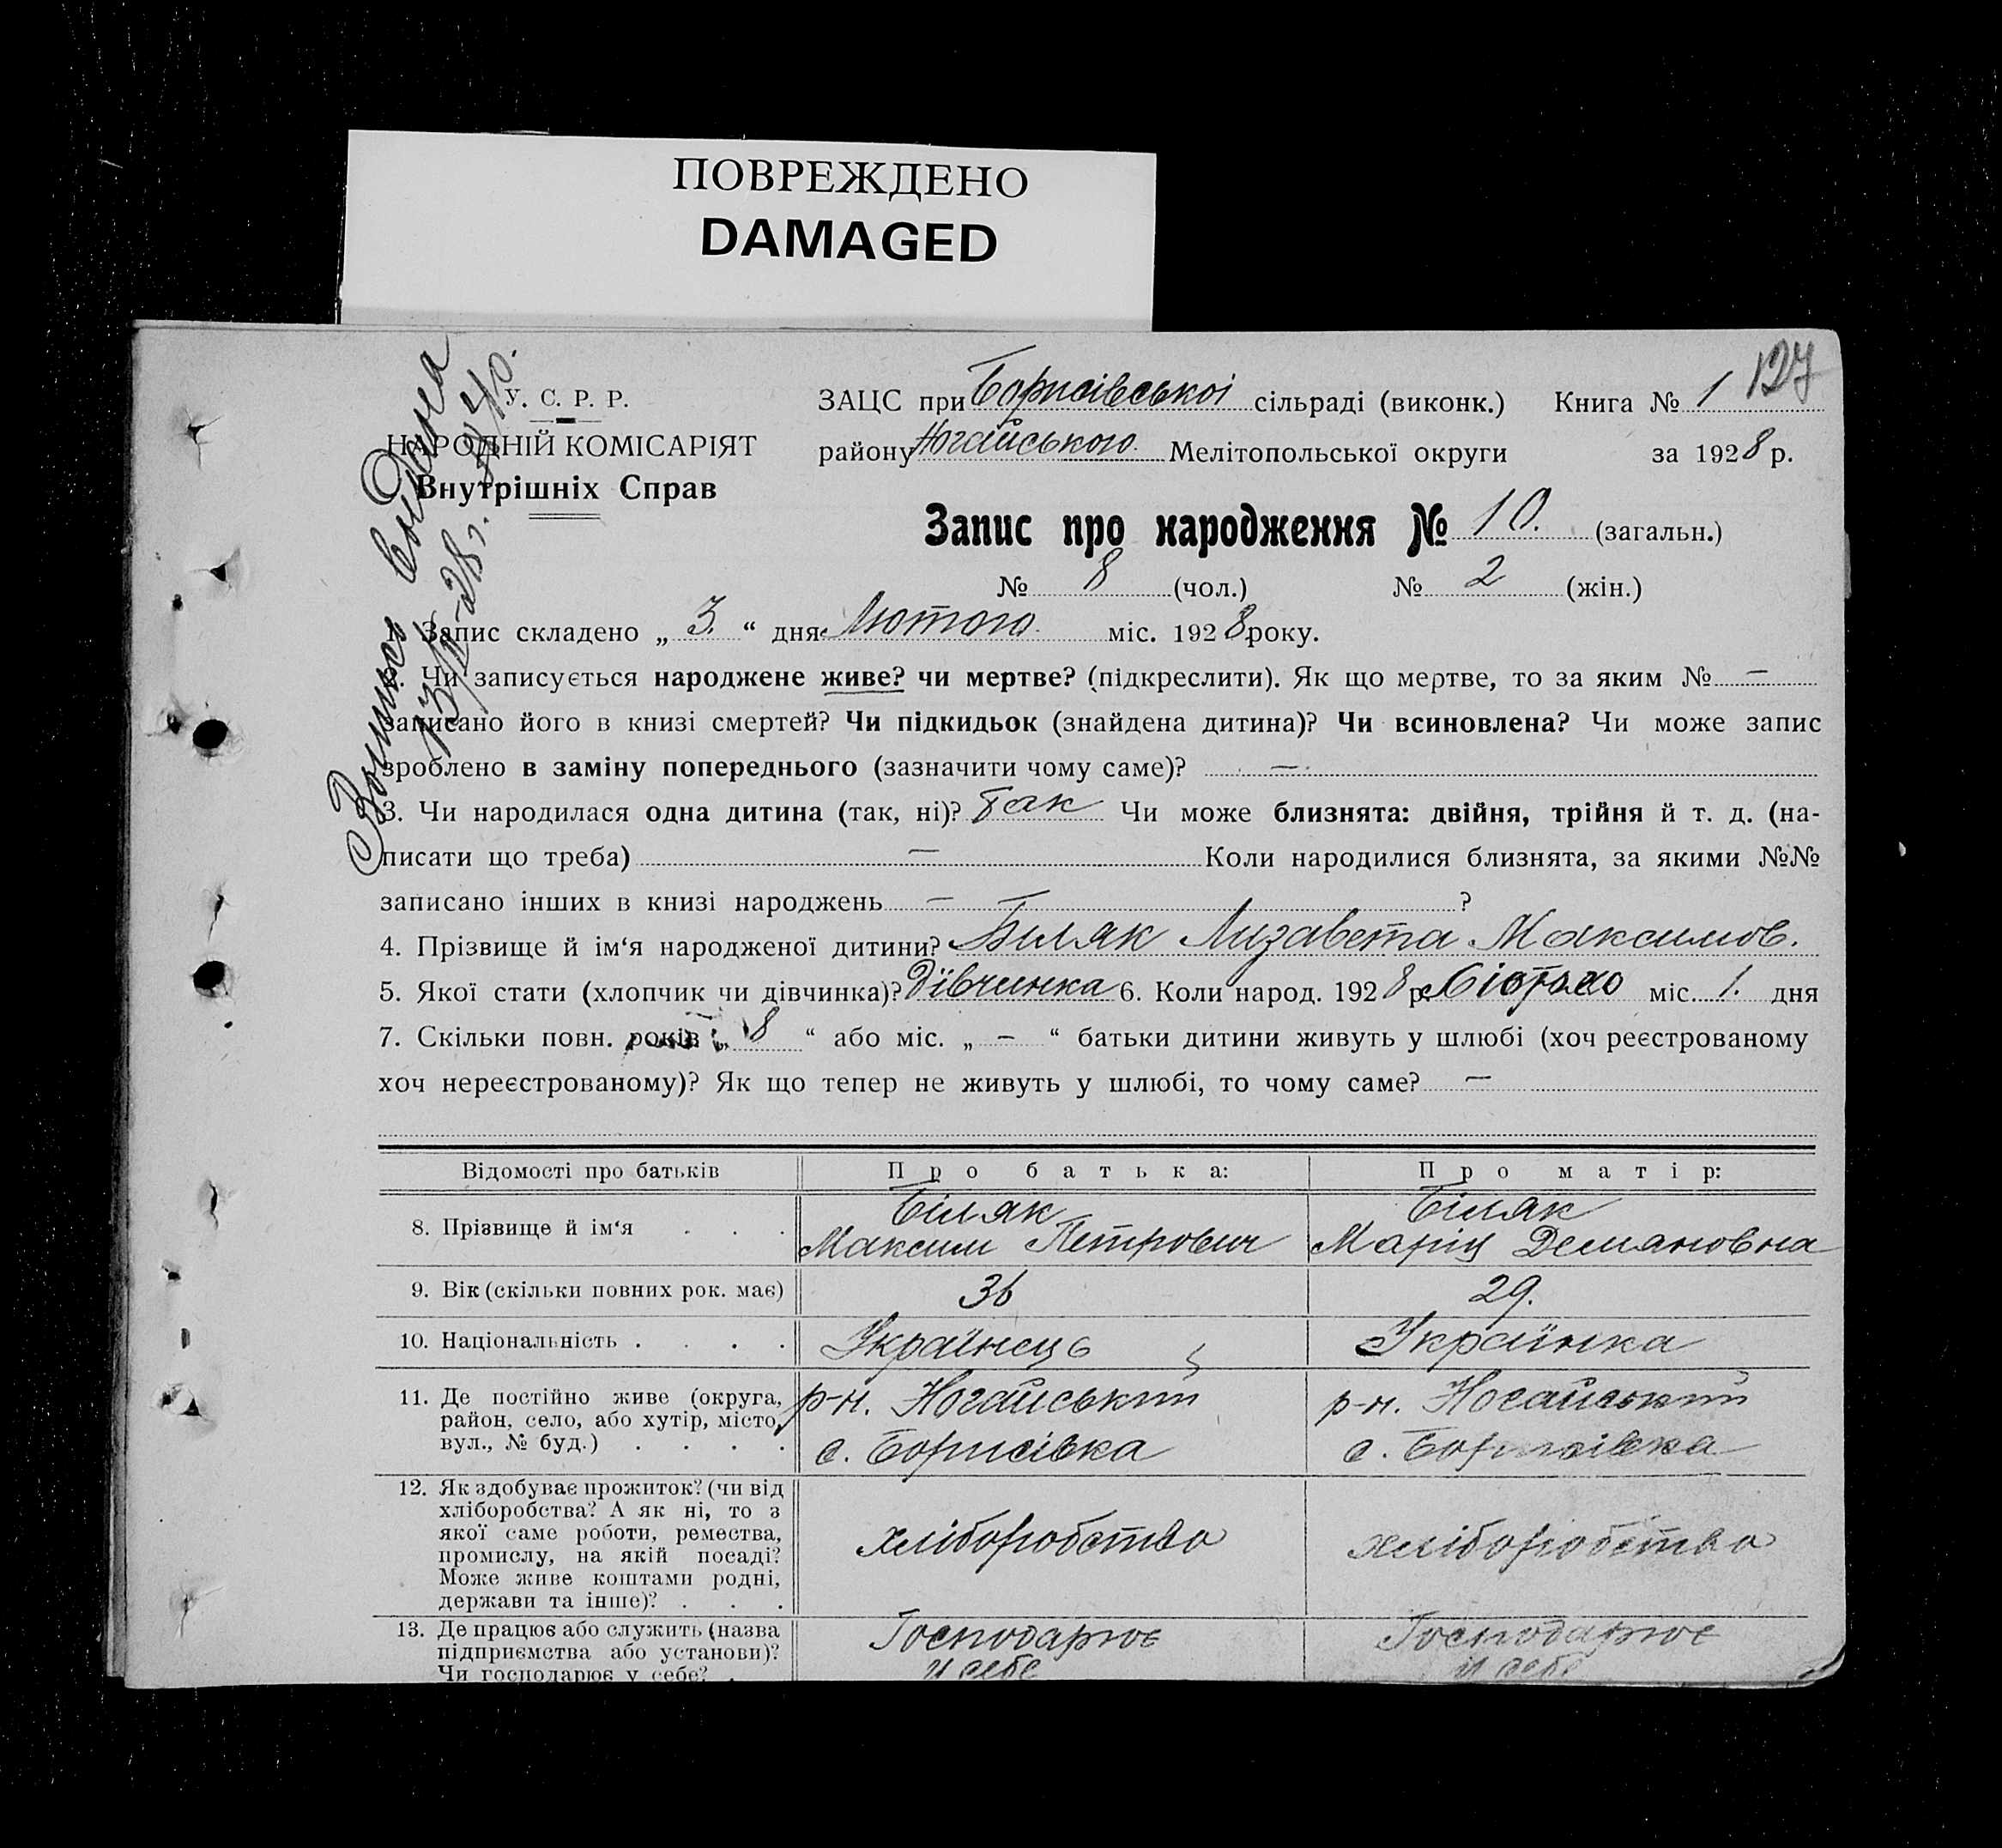 ПОВРЕЖДЕНО
DAMAGED
127
У. С. Р. Р.
НАРОДНІЙ КОМІСАРІЯТ
Внутрішніх Справ
ЗАЦС при Борисівської сільраді (виконк.) Книга № 1
району Ногайського Мелітопольської округи за 1928 р.
Запис про народження № 10. (загальн.)
№ 8 (чол.) № 2 (жін.)
Запис складено „ 3. “ дня Лютого міс. 1928 року.
Чи записується народжене живе? чи мертве? (підкреслити). Як що мертве, то за яким № —
записано його в книзі смертей? Чи підкидьок (знайдена дитина)? Чи всиновлена? Чи може запис
зроблено в заміну попереднього (зазначити чому саме)? —
3. Чи народилася одна дитина (так, ні)? Так Чи може близнята: двійня, трійня й т. д. (на-
писати що треба) — Коли народилися близнята, за якими №№
записано інших в книзі народжень — ?
4. Прізвище й ім‘я народженої дитини? Біляк Лизавета Максимов.
5. Якої стати (хлопчик чи дівчинка)? Дївчинка 6. Коли народ. 1928 р. міс. 1. дня
7. Скільки повн. років „ 8 “ або міс. „ – “ батьки дитини живуть у шлюбі (хоч реєстрованому
хоч нереєстрованому)? Як що тепер не живуть у шлюбі, то чому саме? —
Відомості про батьків Про батька: Про матір:
8. Прізвище й ім‘я . . . Біляк Максим Петрович Біляк Марія Демяновна
9. Вік (скільки повних рок. має) 36 29.
10. Національність . . . . Українець Українка
11. Де постійно живе (округа,
район, село, або хутір, місто,
вул., № буд.) . . . .
р-н. Ногайський
с. Борисівка
р-н. Ногайський
с. Борисівка
12. Як здобуває прожиток? (чи від
хліборобства? А як ні, то з
якої саме роботи, ремества,
промислу, на якій посаді?
Може живе коштами родні,
держави та інше)? . . .
хліборобство
хліборобство
13. Де працює або служить (назва
підприємства або установи)?
Чи господарює у себе? .
Господарює
и себе
Господарює
и себе